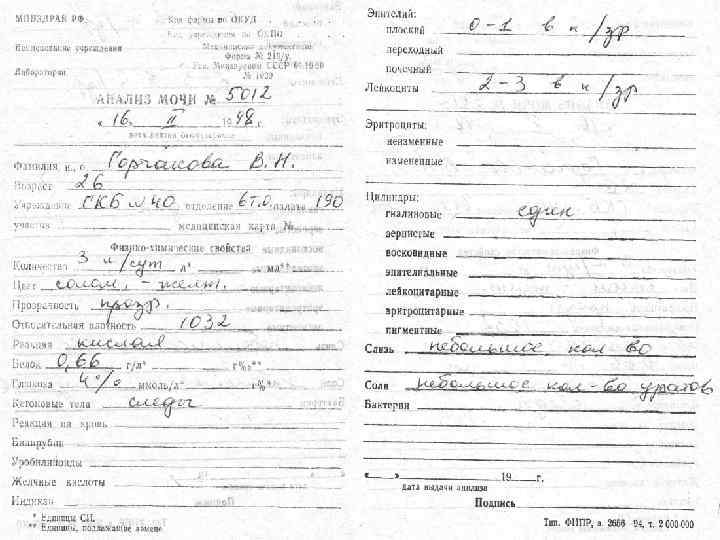 МИНЗДРАВ РФ.
Код формы по ОКУД
Код учреждения по ОКПО
Наименование учреждения
Медицинская документация
Форма № 210/у.
Лаборатория
Утв. Минздравом СССР 04.10.80
№ 1030
АНАЛИЗ МОЧИ № 5012
« 16 » II 1998 г.
дата взятия биоматериала
Фамилия и., о. Горчакова В. Н.
Возраст 26
Учреждение СКБ № 40 отделение 6 Т.О. палата 190
участок медицинская карта №
Физико-химические свойства
Количество 3 л/сут л* мл**
Цвет солом. - желт.
Прозрачность прозр.
Относительная плотность 1032
Реакция кислая
Белок 0,66 г/л* г‰**
Глюкоза 4% ммоль/л* г%
Кетоновые тела следы
Реакция на кровь
Билирубин
Уробилиноиды
Желчные кислоты
Индикан
* Единицы СИ.
** Единицы, подлежащие замене
Эпителий:
плоский 0-1 в п/зр
переходный
почечный
Лейкоциты 2-3 в п/зр
Эритроциты:
неизменные
измененные
Цилиндры:
гиалиновые един
зернистые
восковидные
эпителиальные
лейкоцитарные
эритроцитарные
пигментные
Слизь небольшое кол во
Соли небольшое кол-во уратов
Бактерии
« » 19 г.
дата выдачи анализа
Подпись
Тип. ФИПР, з. 2666 -94, т. 2 000 000